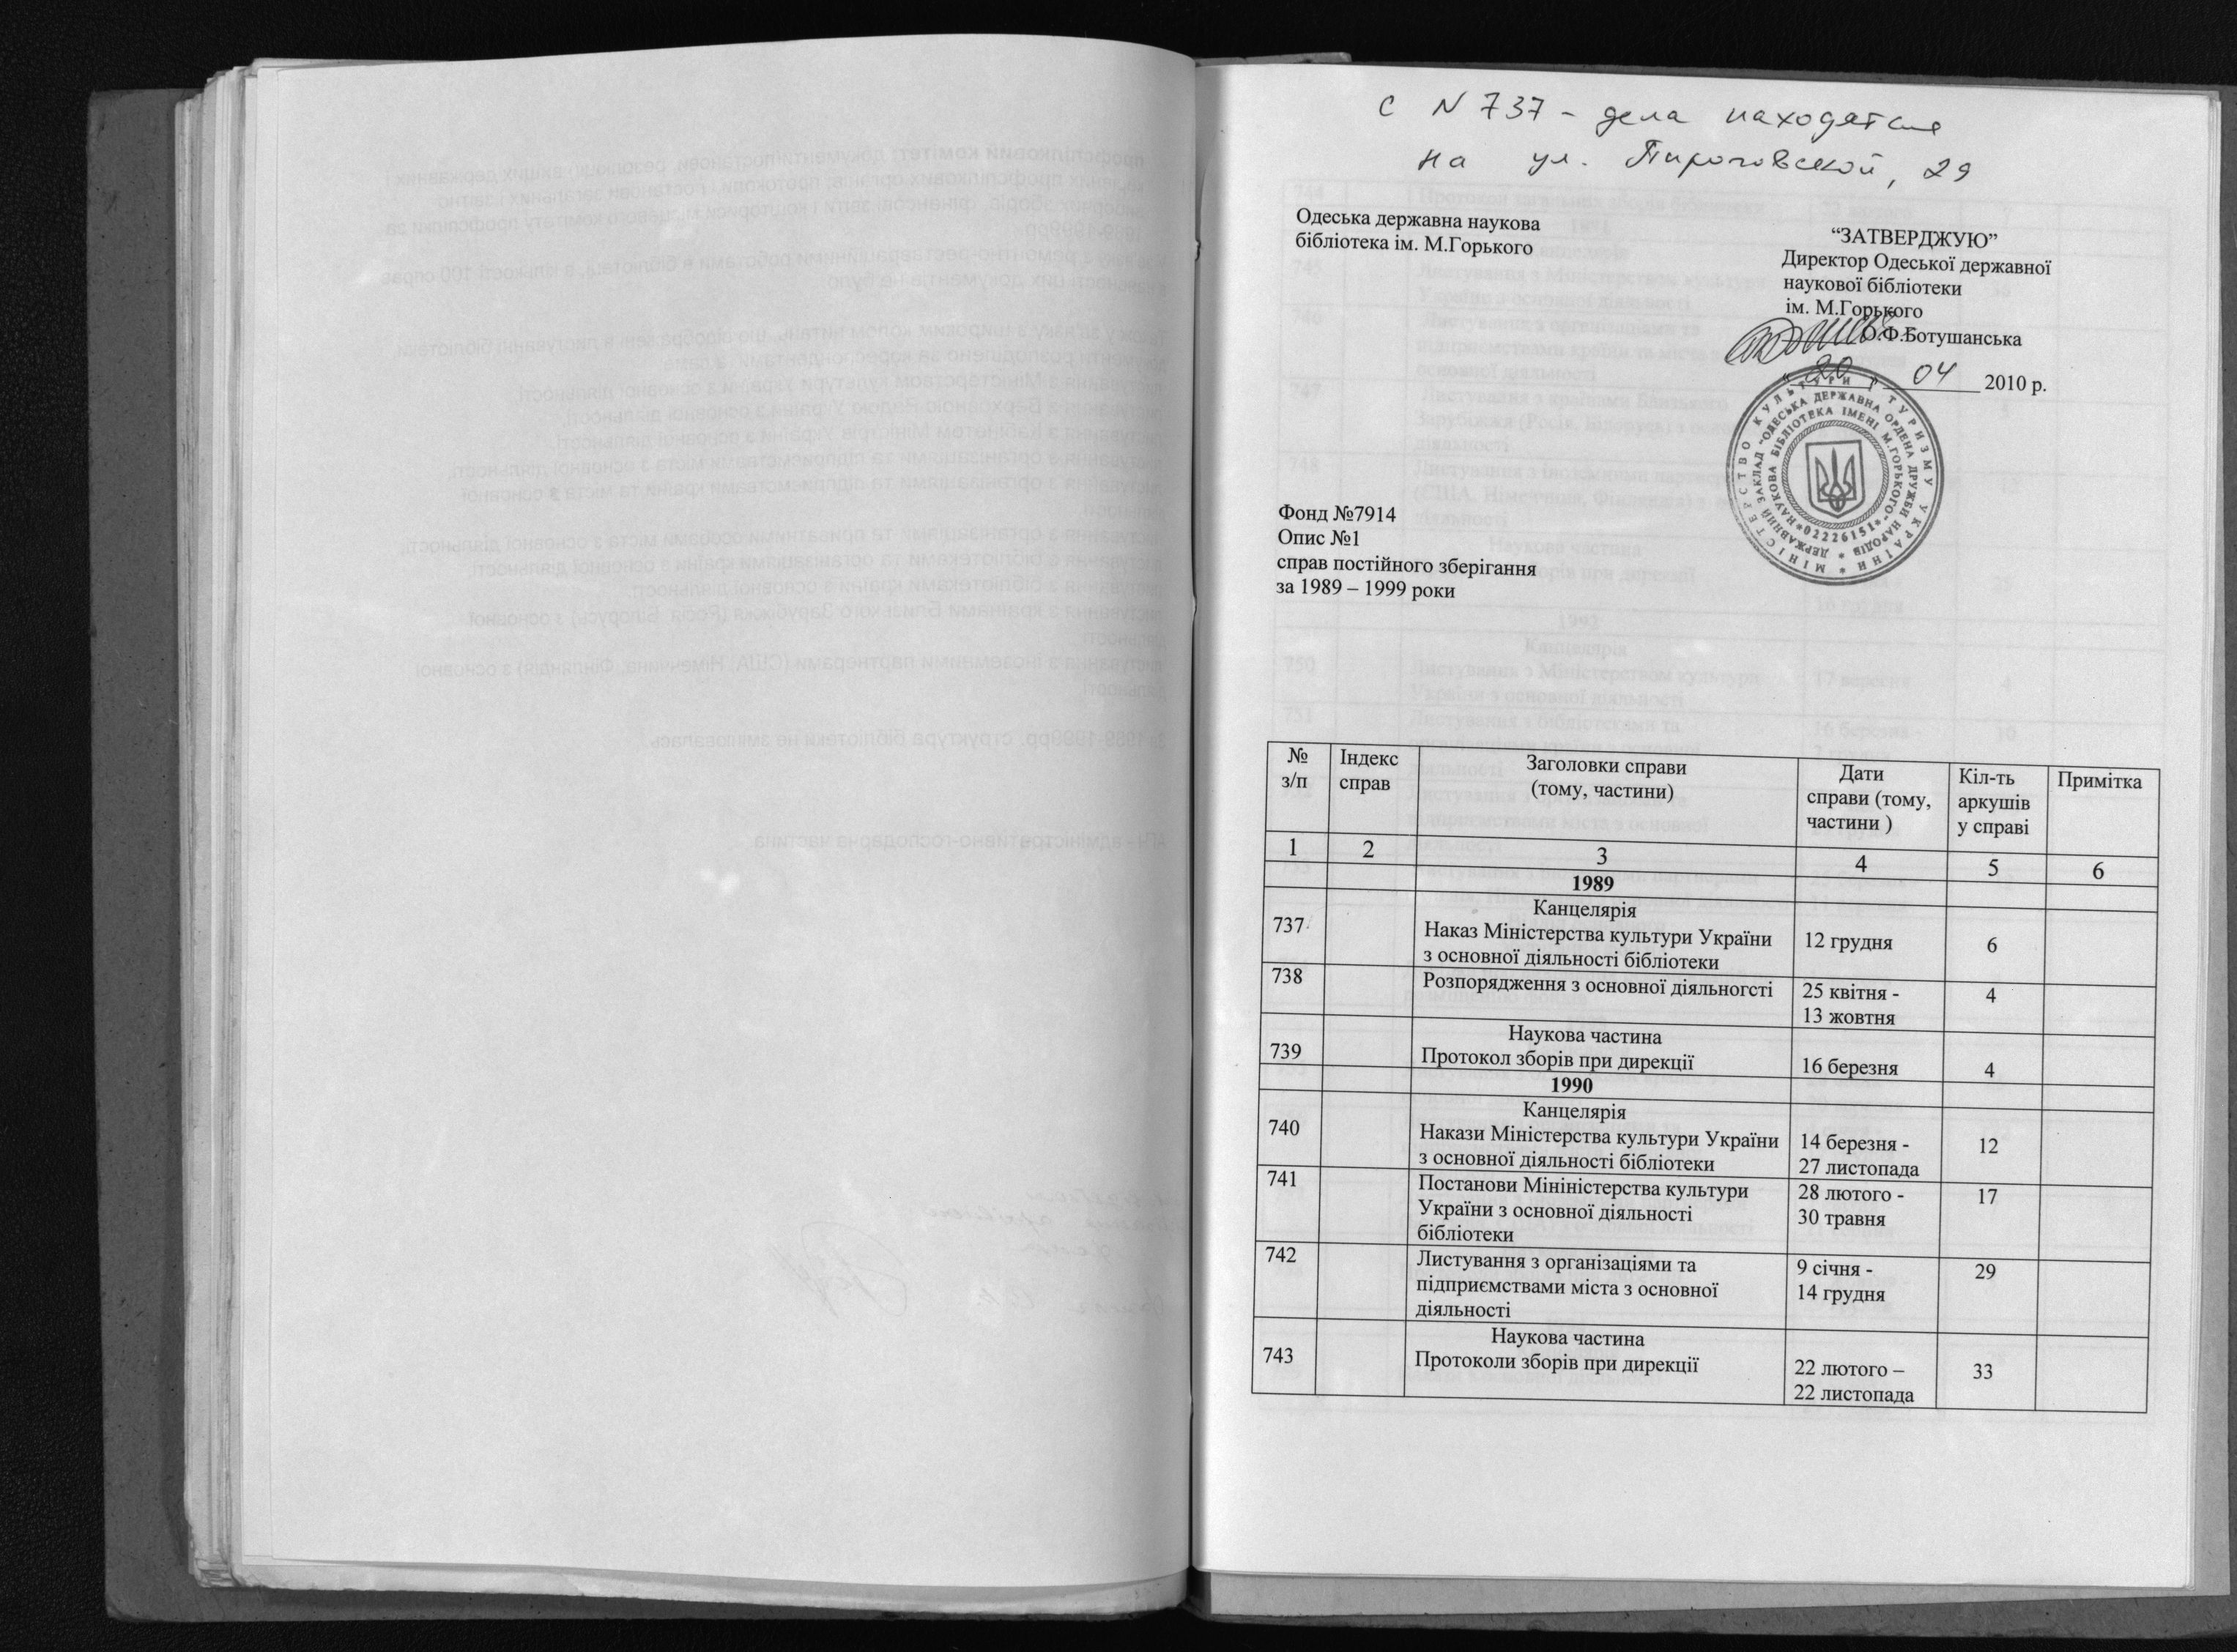 С N 737 - дела находятся
на ул. Пироговской, 29
Одеська державна наукова
бібліотека ім. М.Горького
“ЗАТВЕРДЖУЮ”
Директор Одеської державної
наукової бібліотеки
ім. М.Горького
О.Ф.Ботушанська
“ 20 ” 04 2010 р.
МІНІСТЕРСТВО КУЛЬТУРИ І ТУРИЗМУ УКРАЇНИ *
ДЕРЖАВНИЙ ЗАКЛАД "ОДЕСЬКА ДЕРЖАВНА ОРДЕНА ДРУЖБИ НАРОДІВ *
НАУКОВА БІБЛІОТЕКА ІМЕНІ М.ГОРЬКОГО" *02226151*
Фонд №7914
Опис №1
справ постійного зберігання
за 1989 – 1999 роки
№ з/п Індекс справ Заголовки справи (тому, частини) Дати справи (тому, частини ) Кіл-ть аркушів у справі Примітка
1 2 3 4 5 6
1989
Канцелярія
737 Наказ Міністерства культури України 12 грудня 6
з основної діяльності бібліотеки
738 Розпорядження з основної діяльногсті 25 квітня - 4
13 жовтня
Наукова частина
739 Протокол зборів при дирекції 16 березня 4
1990
Канцелярія
740 Накази Міністерства культури України 14 березня - 12
з основної діяльності бібліотеки 27 листопада
741 Постанови Мініністерства культури 28 лютого - 17
України з основної діяльності 30 травня
бібліотеки
742 Листування з організаціями та 9 січня - 29
підприємствами міста з основної 14 грудня
діяльності
Наукова частина
743 Протоколи зборів при дирекції 22 лютого – 33
22 листопада